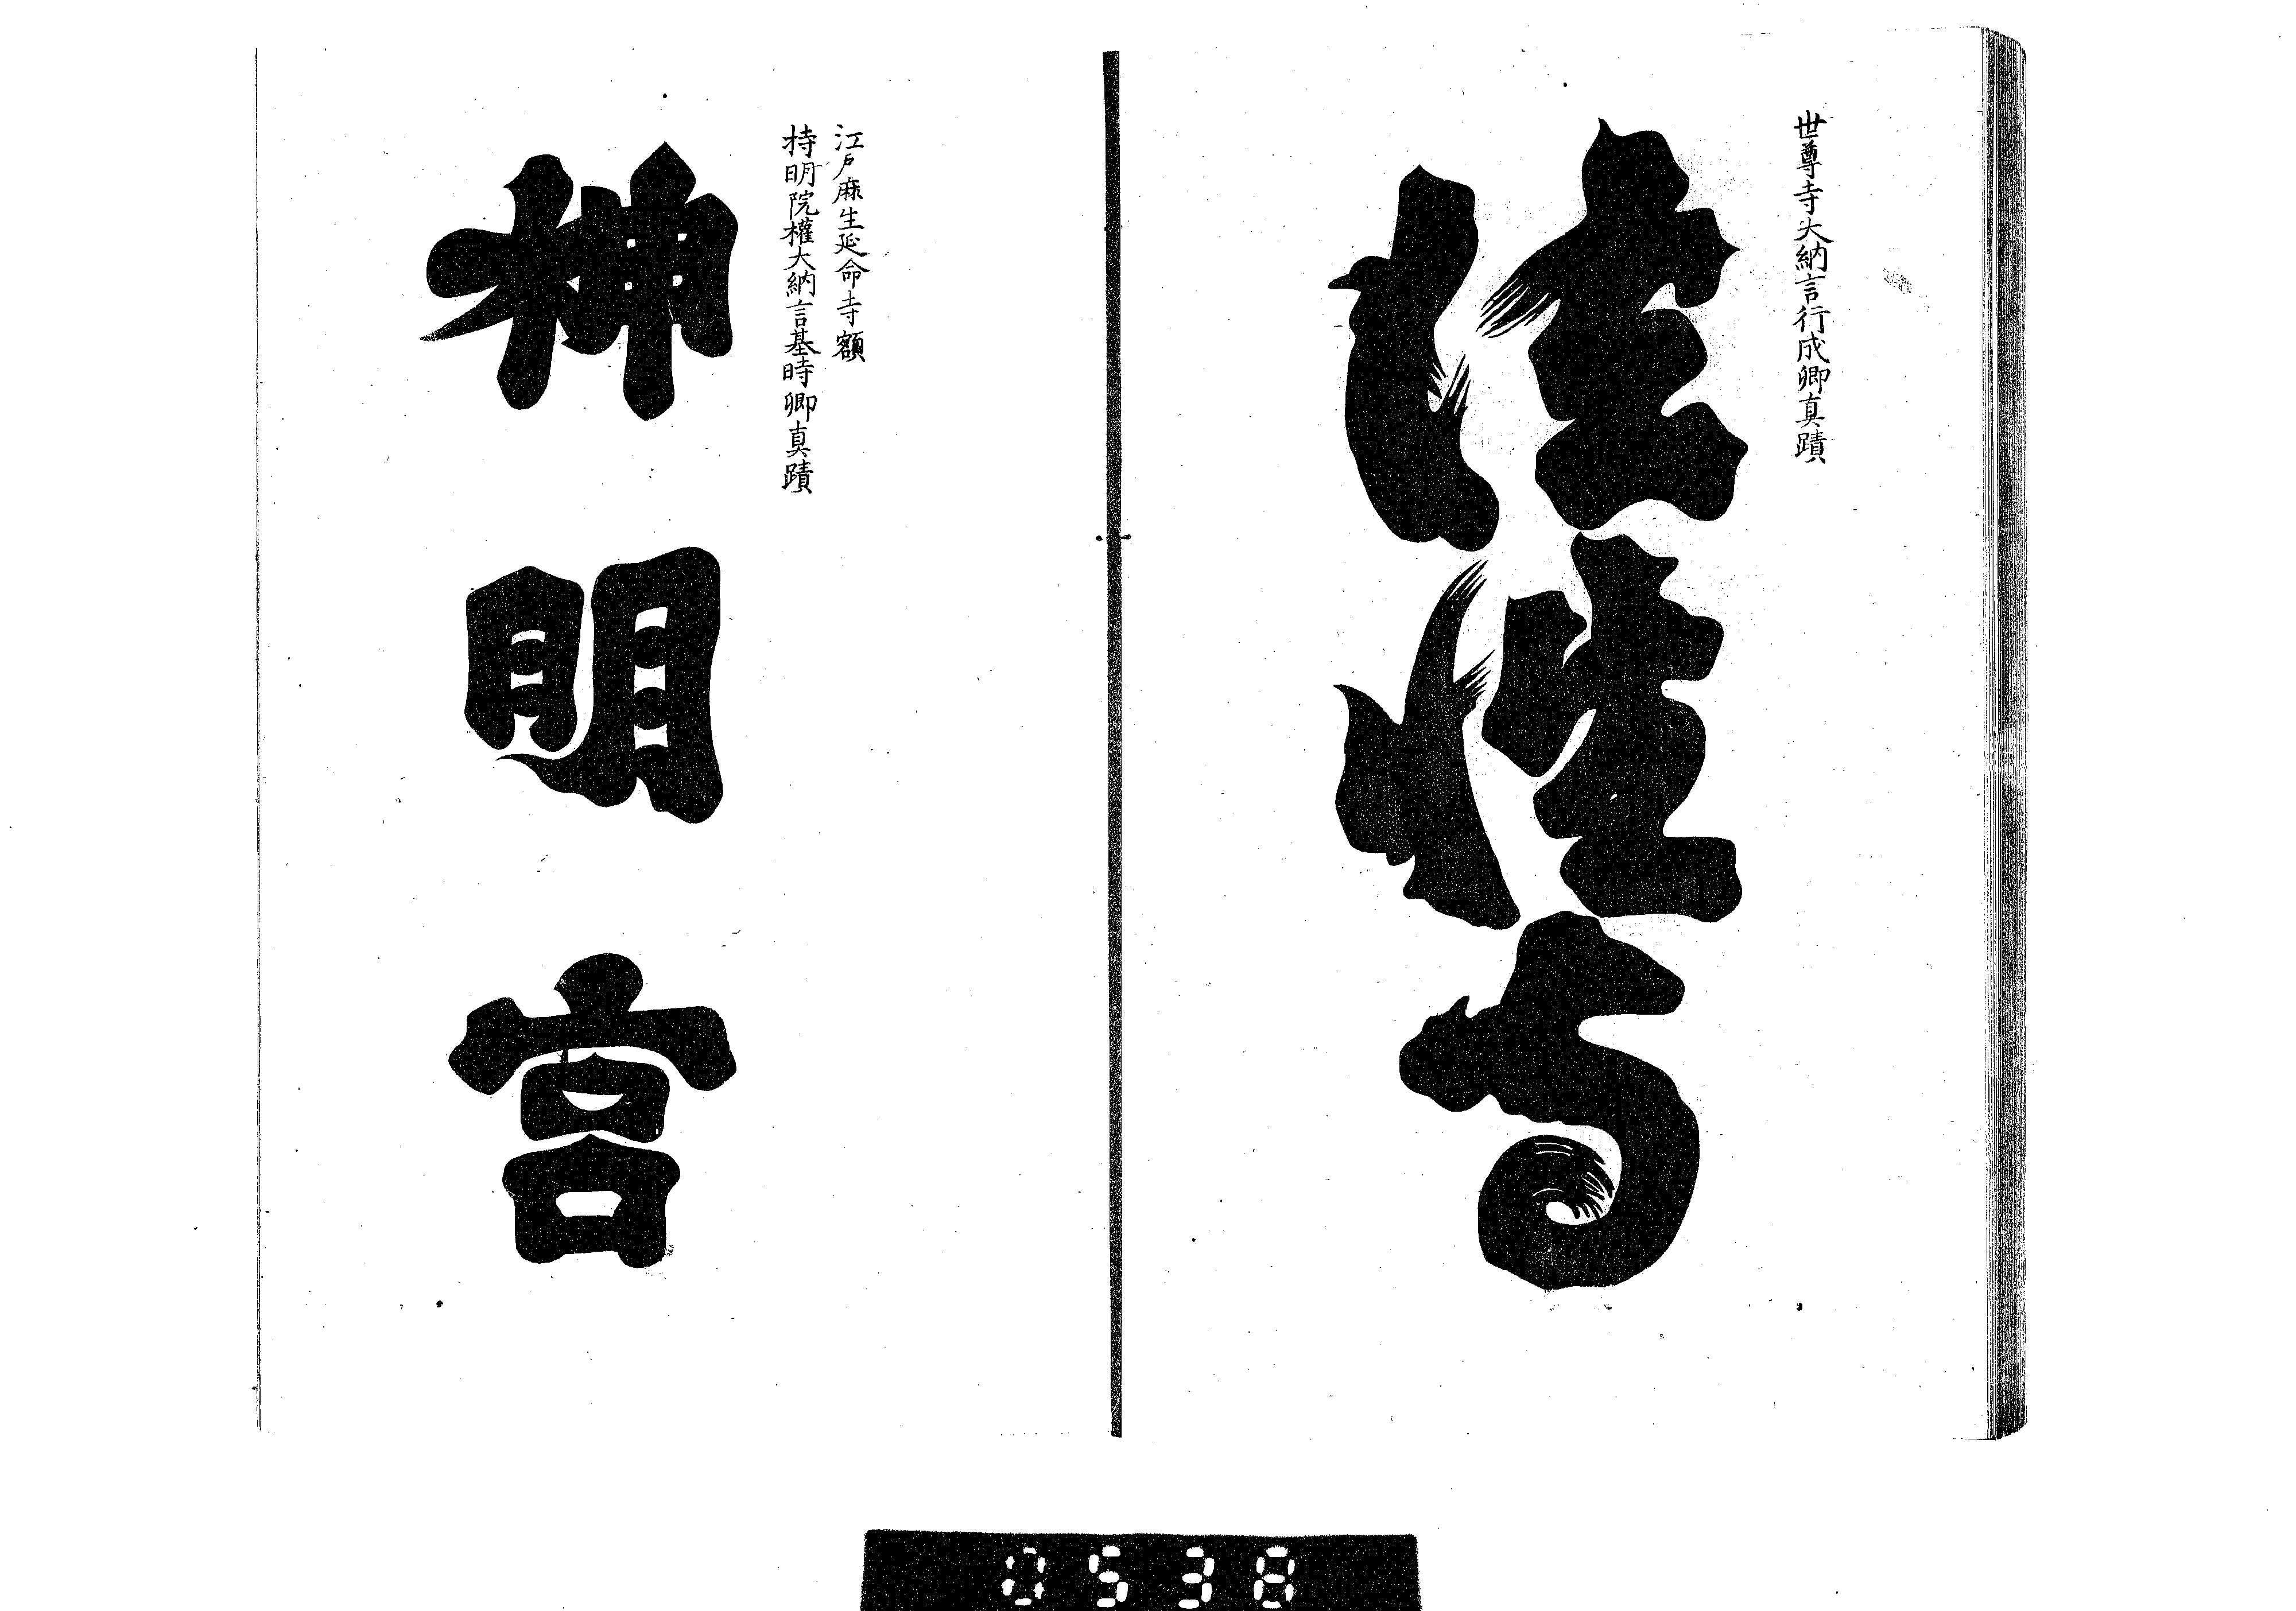 世尊寺大納言行成卿真蹟
法性寺
江戸麻生延命寺額
持明院權大納言基時卿真蹟
神明宮
0538